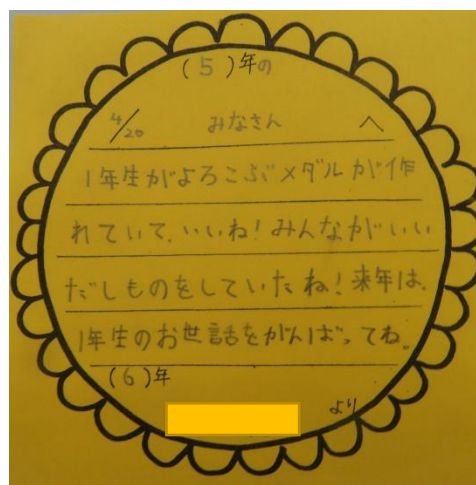 (5)年の
4/20 みなさん へ
1年生がよろこぶメダルが作
れていて、いいね!みんながいい
だしものをしていたね!来年は、
1年生のお世話をがんばってね。
(6)年
より